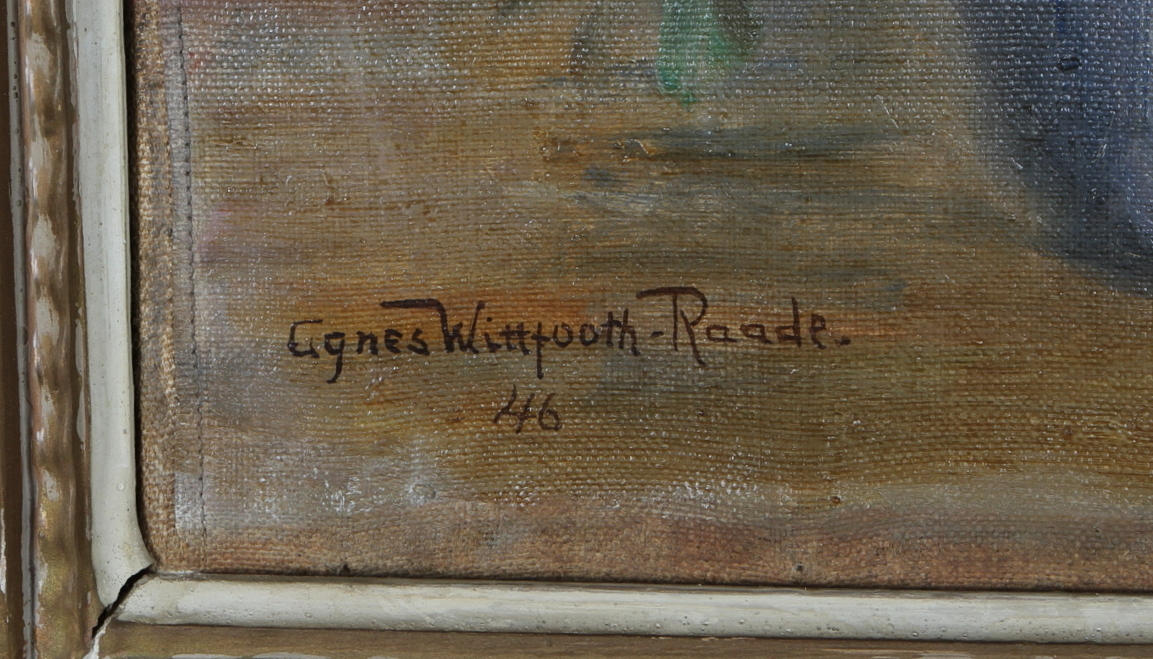 Agnes Wittfooth-Raade.
46